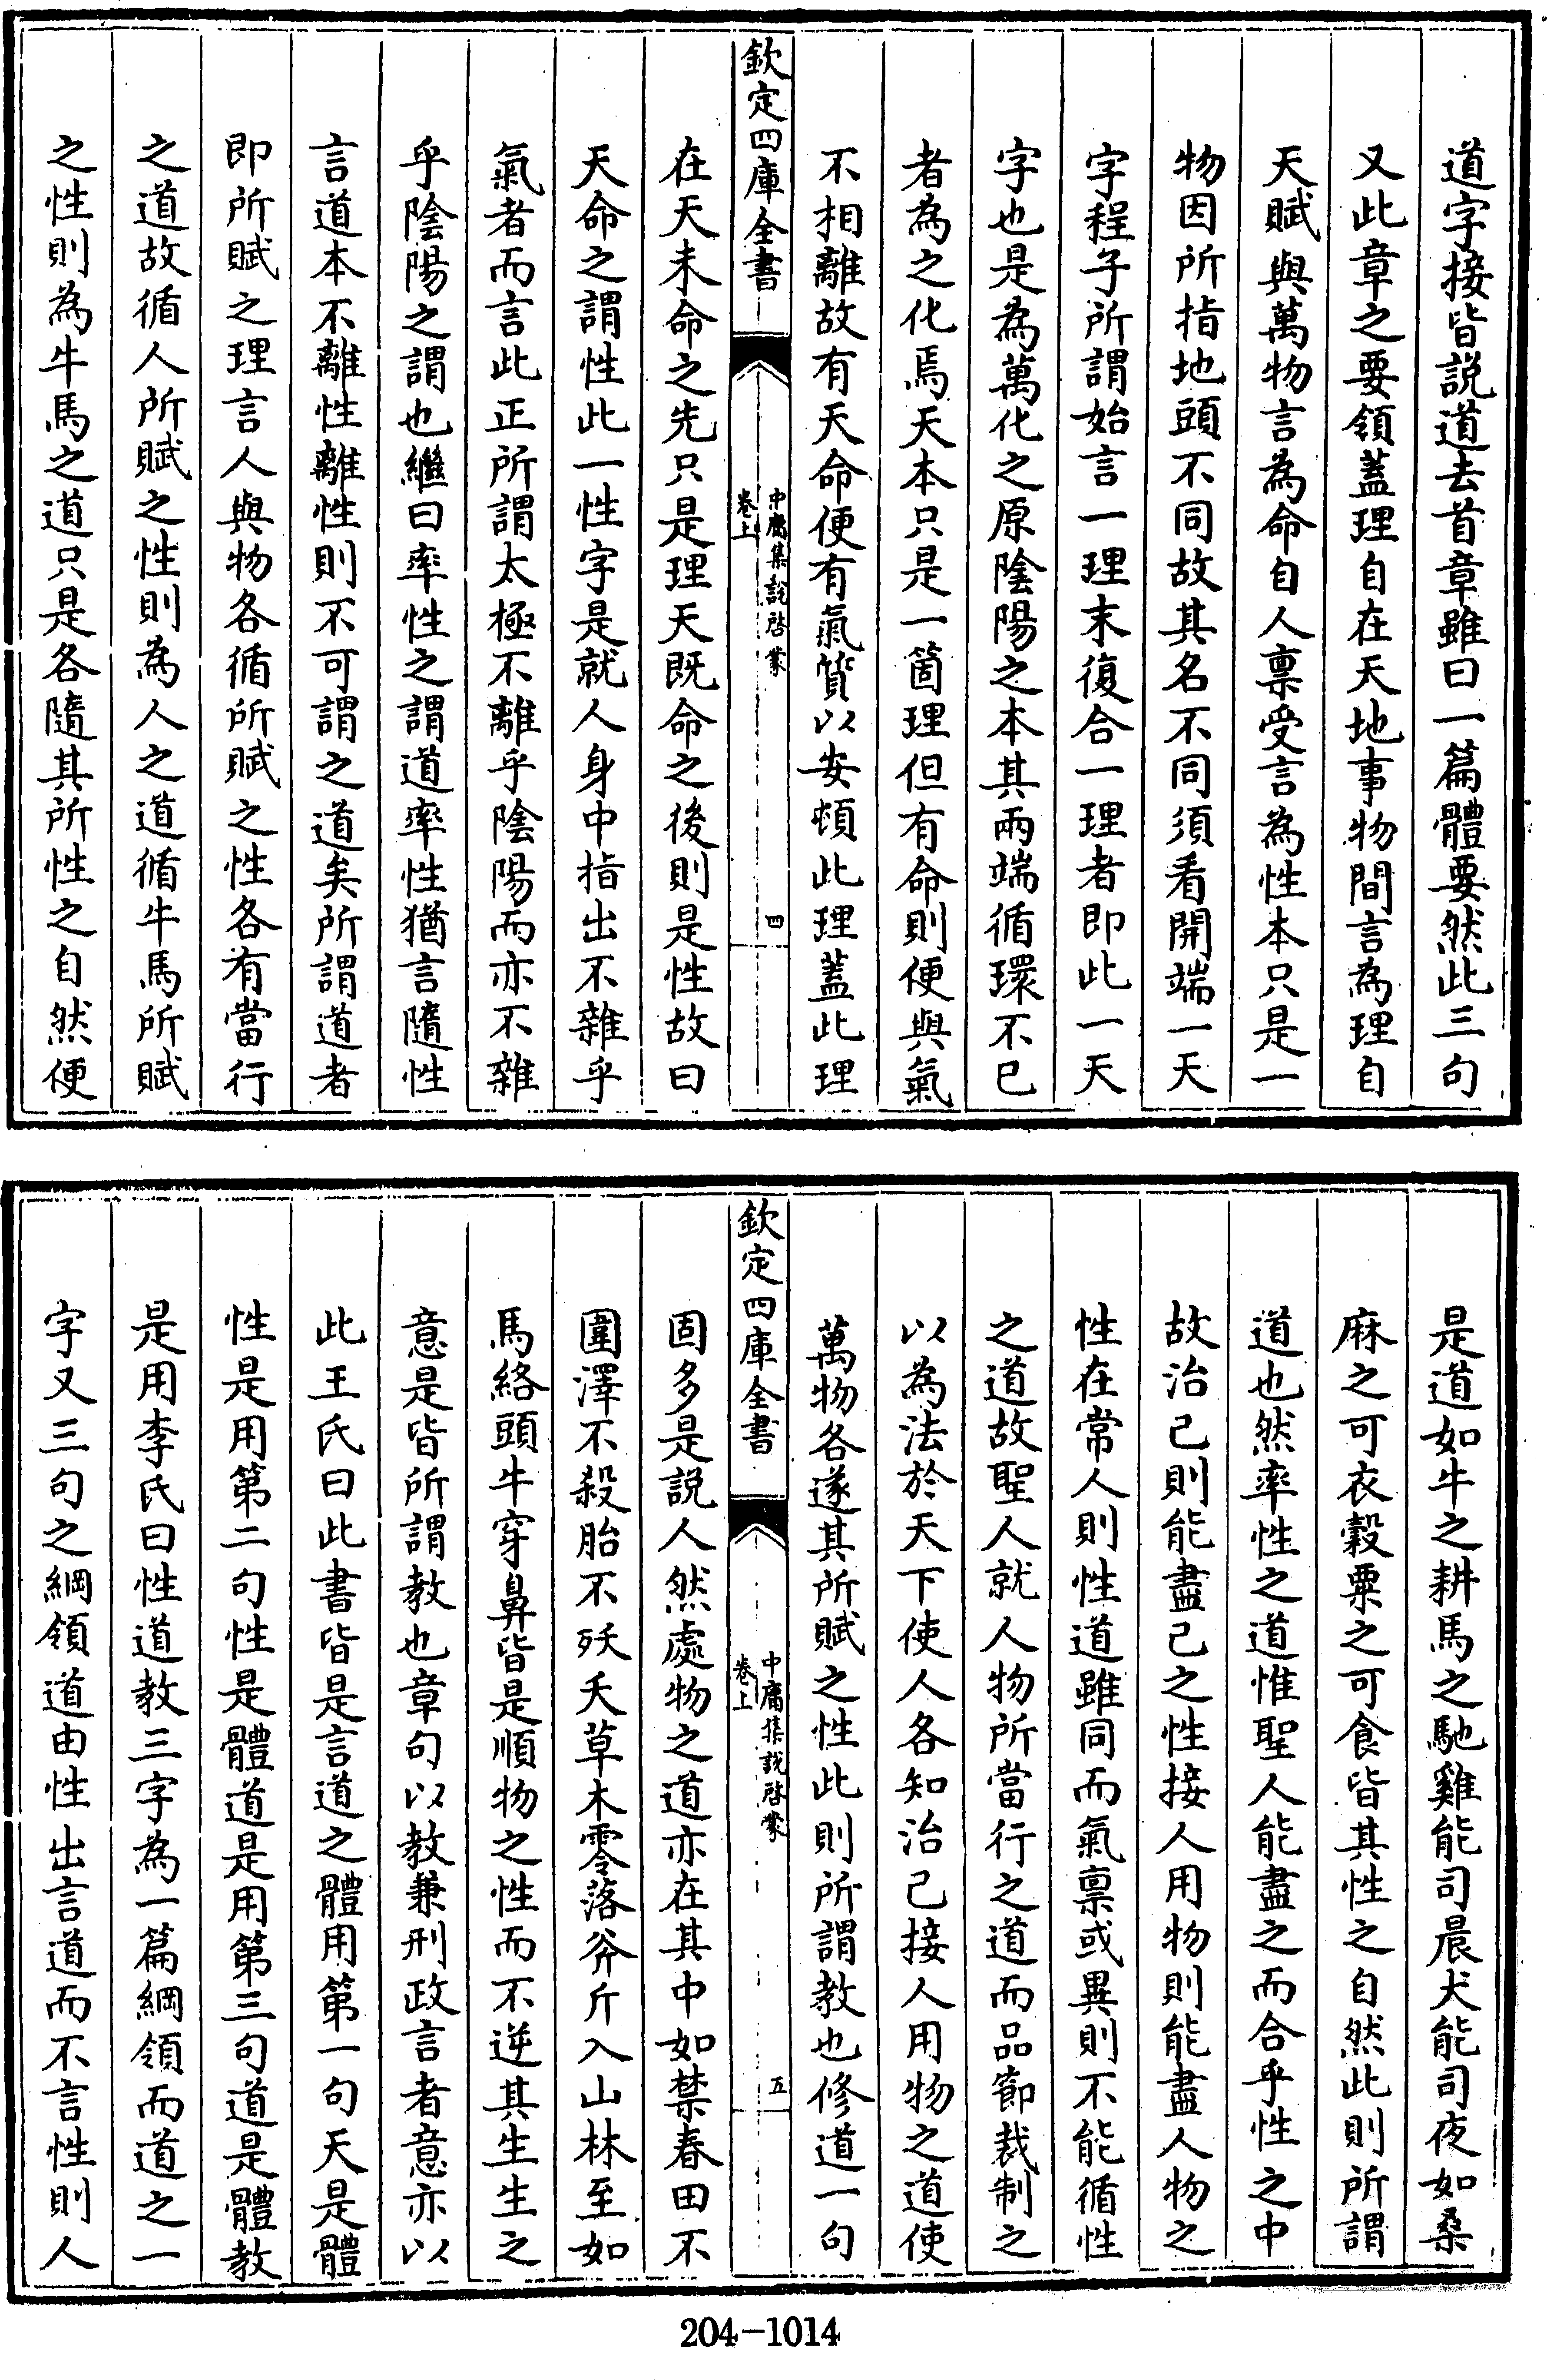 道字接皆説道去首章雖曰一篇體要然此三句
又此章之要領蓋理自在天地事物間言為理自
天賦與萬物言為命自人禀受言為性本只是一
物因所指地頭不同故其名不同須看開端一天
字程子所謂始言一理末復合一理者即此一天
字也是為萬化之原陰陽之本其兩端循環不已
者為之化焉天本只是一箇理但有命則便與氣
不相離故有天命便有氣質以安頓此理蓋此理
欽定四庫全書
中庸集說啓蒙
卷上
四
在天未命之先只是理天既命之後則是性故曰
天命之謂性此一性字是就人身中指出不雜乎
氣者而言此正所謂太極不離乎陰陽而亦不雜
乎陰陽之謂也繼曰率性之謂道率性猶言隨性
言道本不離性離性則不可謂之道矣所謂道者
即所賦之理言人與物各循所賦之性各有當行
之道故循人所賦之性則為人之道循牛馬所賦
之性則為牛馬之道只是各隨其所性之自然便
是道如牛之耕馬之馳雞能司晨犬能司夜如桑
麻之可衣穀粟之可食皆其性之自然此則所謂
道也然率性之道惟聖人能盡之而合乎性之中
故治己則能盡己之性接人用物則能盡人物之
性在常人則性道雖同而氣禀或異則不能循性
之道故聖人就人物所當行之道而品節裁制之
以為法於天下使人各知治己接人用物之道使
萬物各遂其所賦之性此則所謂教也修道一句
欽定四庫全書
中庸集說啓蒙
卷上
五
固多是説人然處物之道亦在其中如禁春田不
圍澤不殺胎不殀夭草木零落斧斤入山林至如
馬絡頭牛穿鼻皆是順物之性而不逆其生生之
意是皆所謂教也章句以教兼刑政言者意亦以
此王氏曰此書皆是言道之體用第一句天是體
性是用第二句性是體道是用第三句道是體教
是用李氏曰性道教三字為一篇綱領而道之一
字又三句之綱領道由性出言道而不言性則人
204-1014